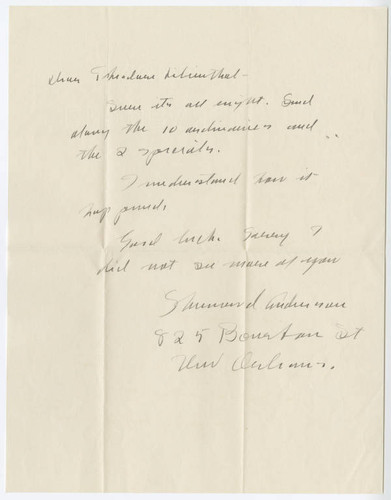 Dear Theodore Lilienthal -
Sure its all right. Send
along the 10 ordinaries and
the 2 specials.
I understand how it
happened.
Good luck. Sorry I
did not see more of you
Sherwood Anderson
825 Bourbon St
New Orleans.